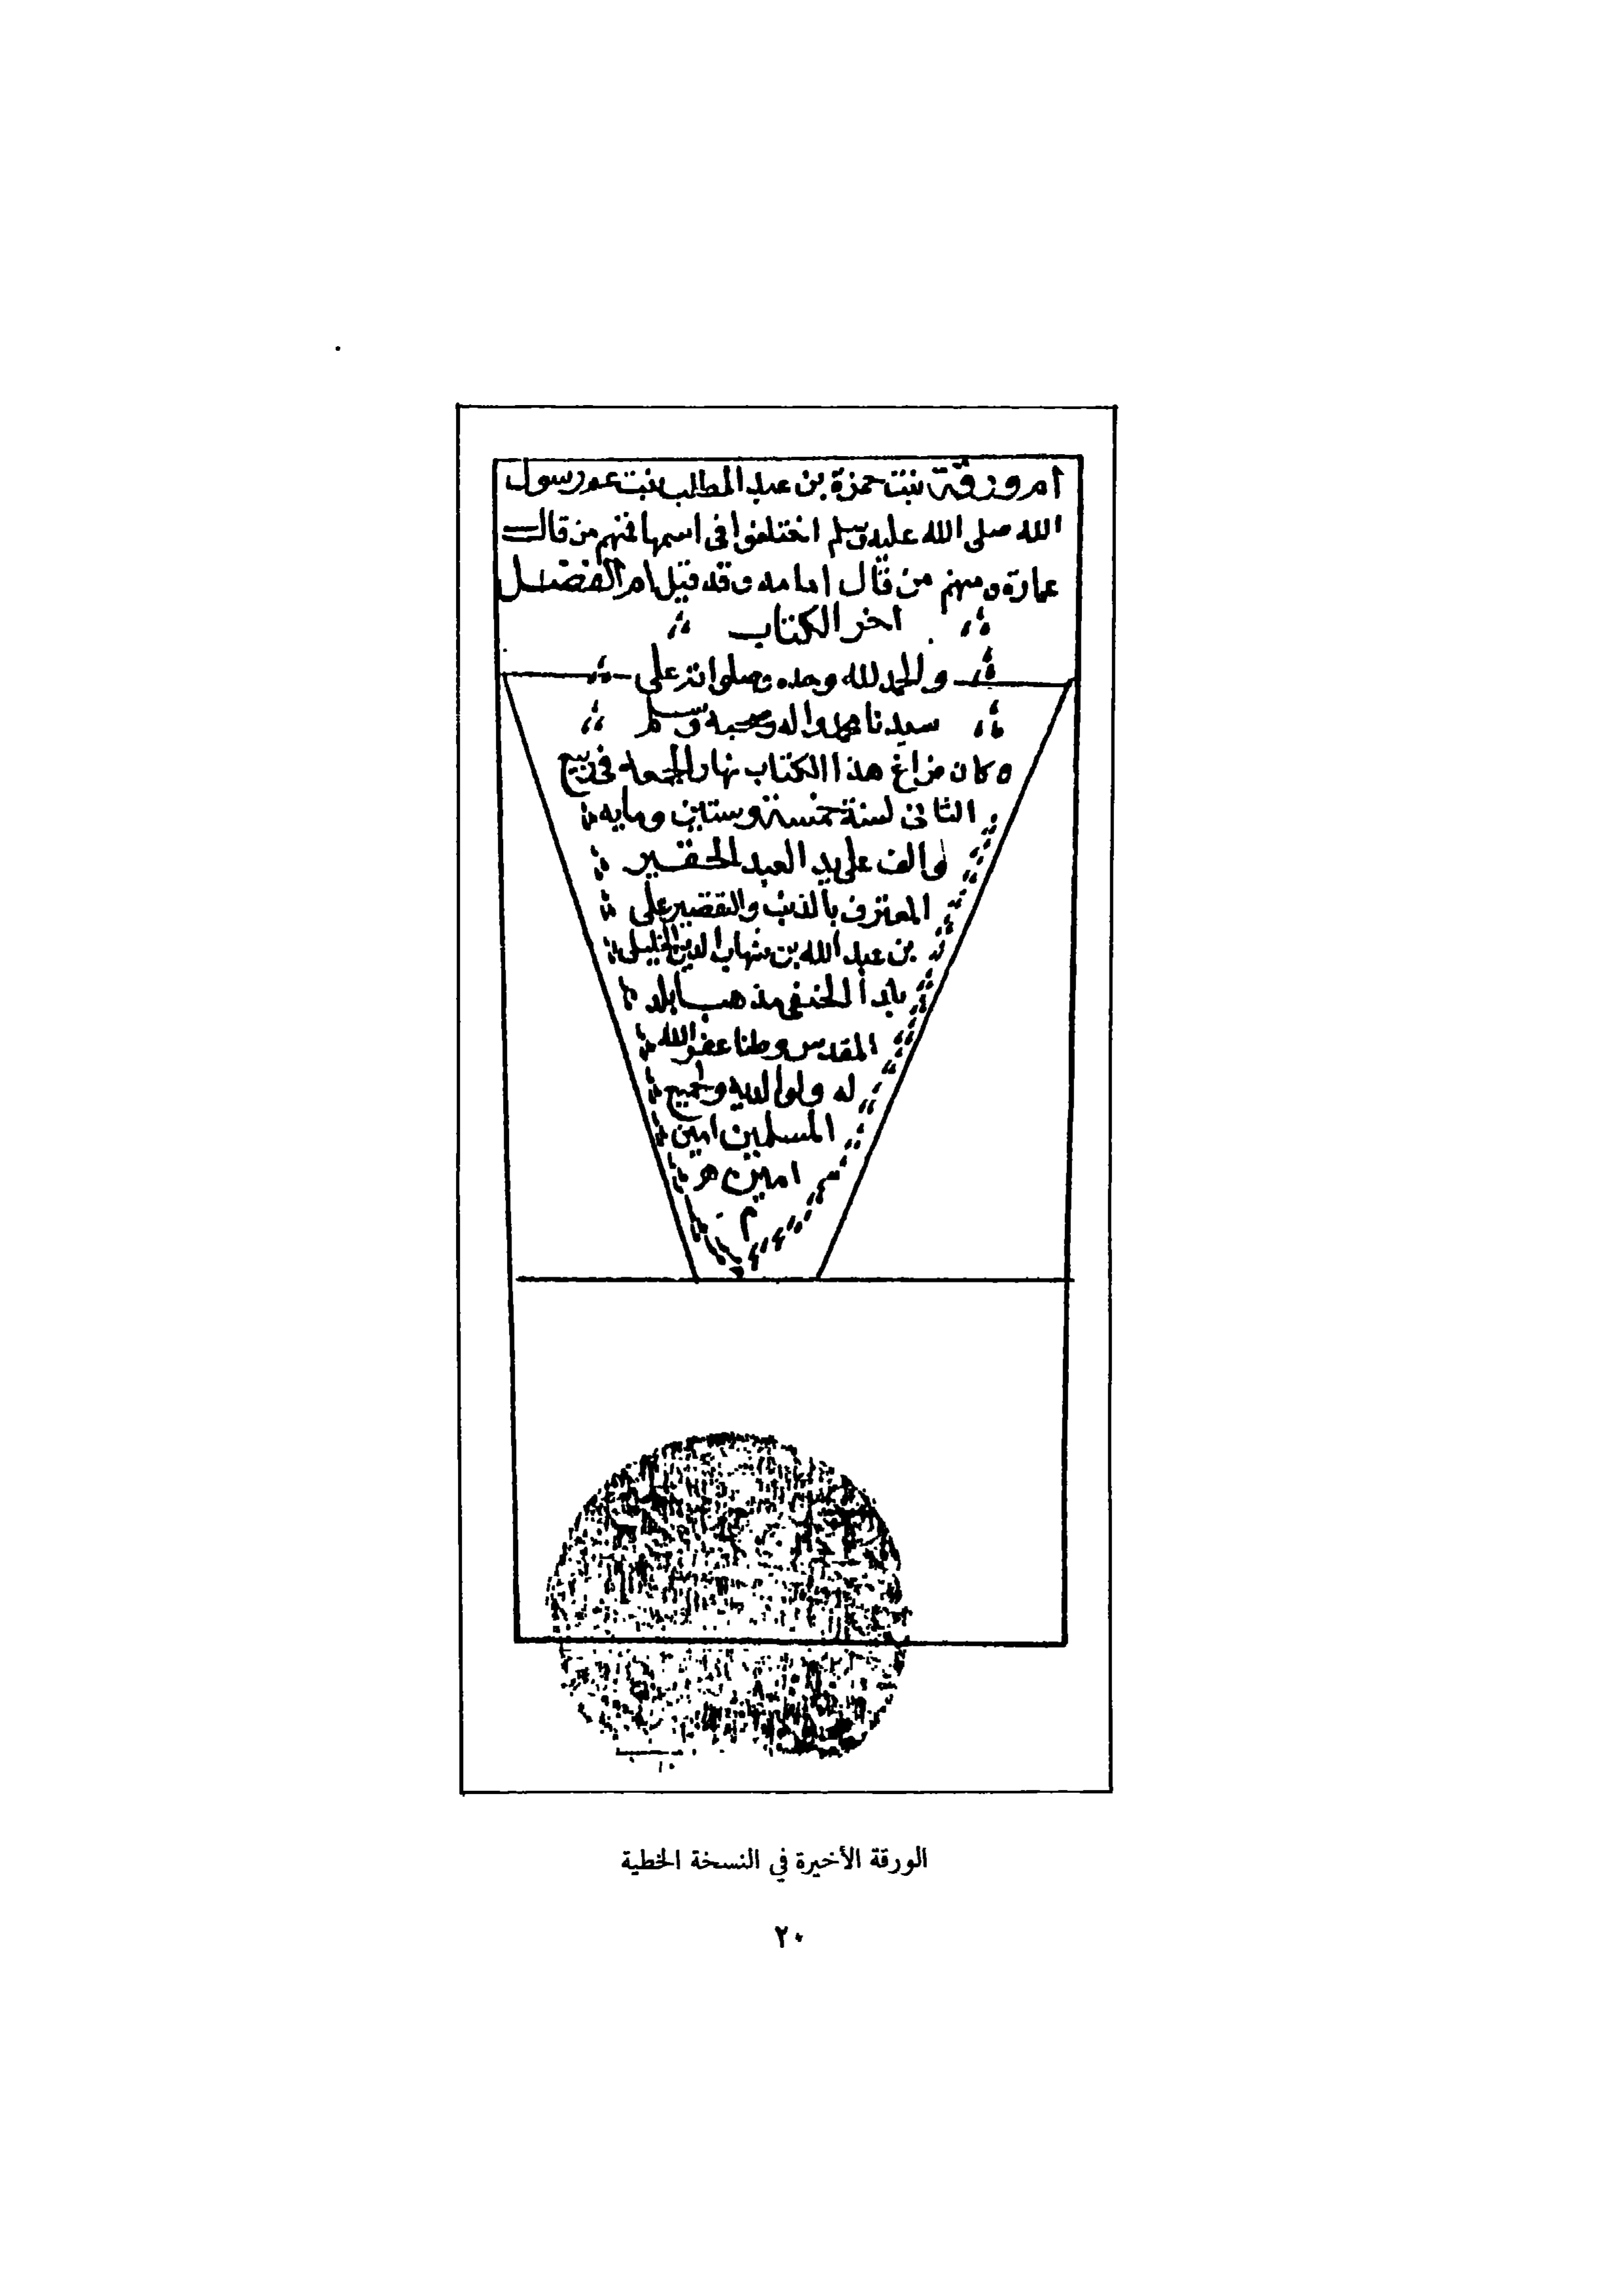 ام ورقة بنت حمزة بن عبد المطلب بنت عم رسول
الله صلى الله عليه وسلم اختلفوا فى اسمها فمنهم من قال
عمارة ومنهم من قال امامه وقد قيل ام الفضل
اخر الكتاب
والحمد لله وحده وصلواته على
سيدنا محمد واله وصحبه وسلم
وكان فراغ هذا الكتاب نهار الجمعه فى ربيع
الثانى لسنة خمسة وستين ومايه
والف على يد العبد الحقير
المعترف بالذنب والتقصير على
بن عبد الله بن شهاب الدين الخليلى
الحنفى مذهبا
المقدس وطنا عفر الله
له ولوالديه ولجميع
المسلمين امين
امين
م
الورقة الأخيرة في النسخة الخطية
٢٠